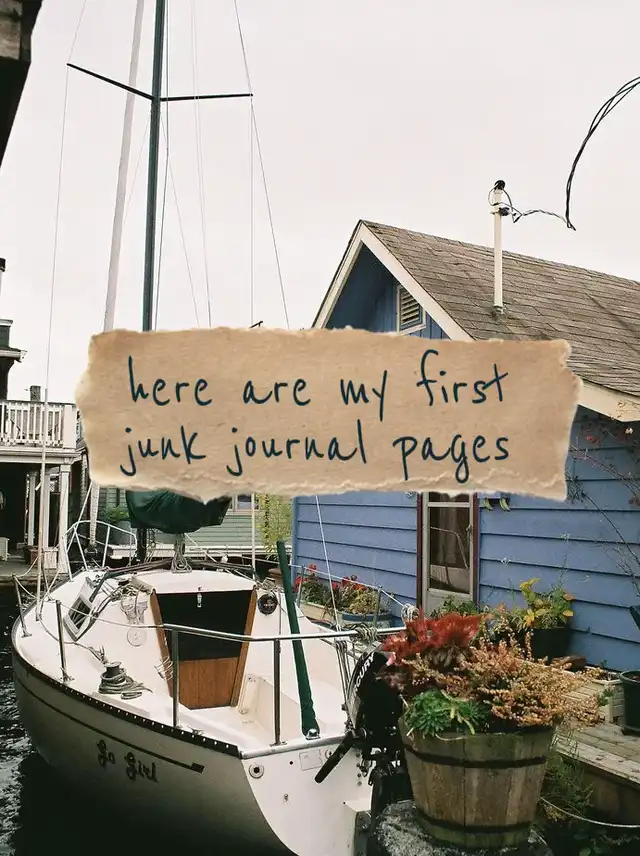 here are my first
junk journal pages
Go Girl